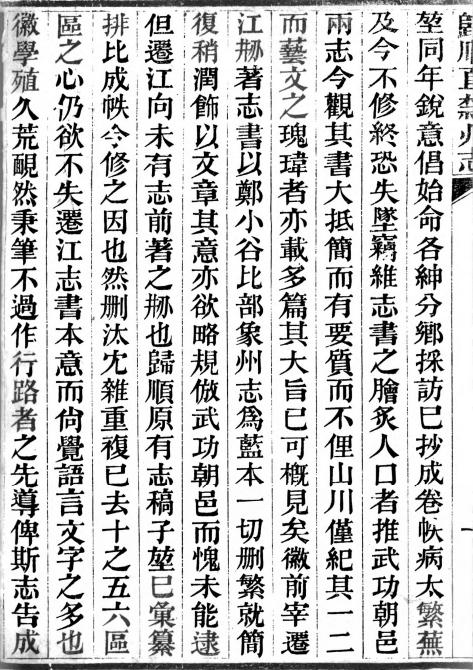 歸順直隸州志
堃同年銳意倡始命各紳分鄉採訪巳抄成卷帙病太繁蕪
及今不修終恐失墜竊維志書之膾炙人口者推武功朝邑
兩志今觀其書大抵簡而有要質而不俚山川僅紀其一二
而藝文之瑰瑋者亦載多篇其大旨已可概見矣徽前宰遷
江刱著志書以鄭小谷比部象州志爲藍本一切删繁就簡
復稍潤飾以文章其意亦欲略規倣武功朝邑而愧未能逮
但遷江向未有志前著之刱也歸順原有志稿子堃巳彙纂
排比成帙今修之因也然删汰冘雜重複巳去十之五六區
區之心仍欲不失遷江志書本意而尙覺語言文字之多也
徽學殖久荒靦然秉筆不過作行路者之先導俾斯志告成